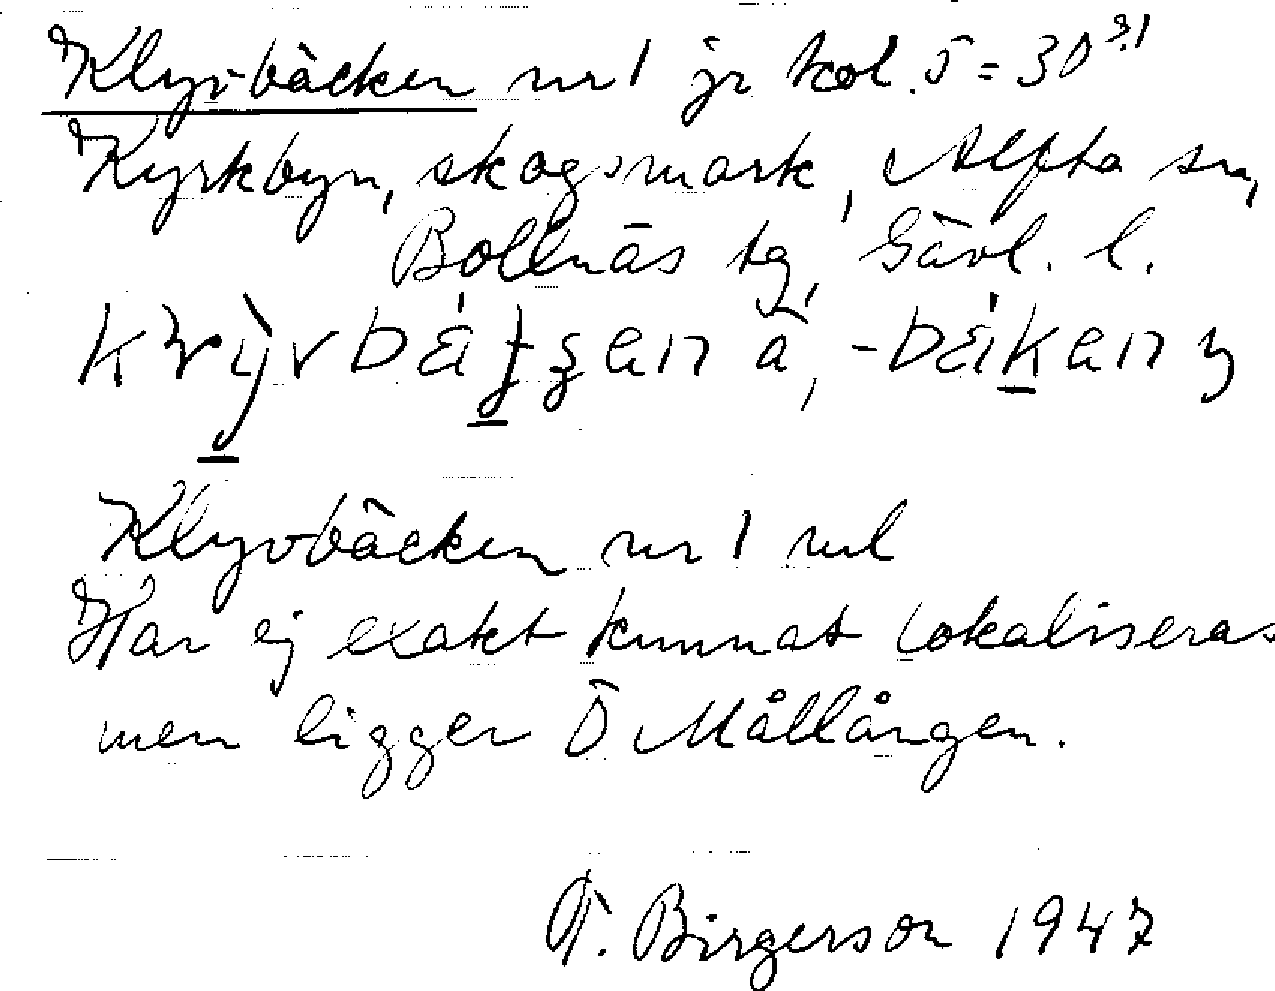 Klyvbäcken nr 1 jr kol. 5 = 30
Kyrkbyn, skogsmark, Alfta sn,
Bollnäs tg, Gävl. l.
Klyvbäcken nr 1 ml
Har ej exakt kunnat lokaliseras
men ligger Ö Mållången.
Birgerson 1947